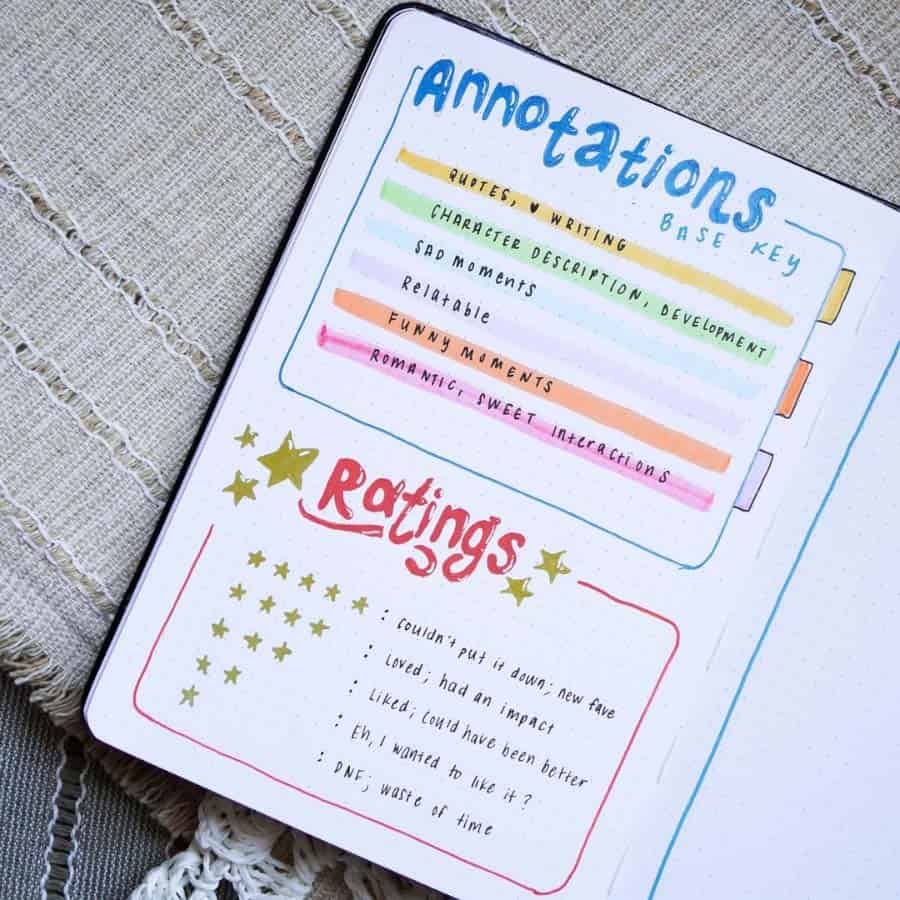 Annotations
BASE KEY
QUOTES, ♥ WRITING
CHARACTER DESCRIPTION, DEVELOPMENT
SAD moments
Relatable
FUNNY MOMENTS
ROMANTIC, SWEET interactions
Ratings
: couldn't put it down; new fave
: Loved; had an impact
: Liked; could have been better
: Eh, I wanted to like it?
: DNF; waste of time